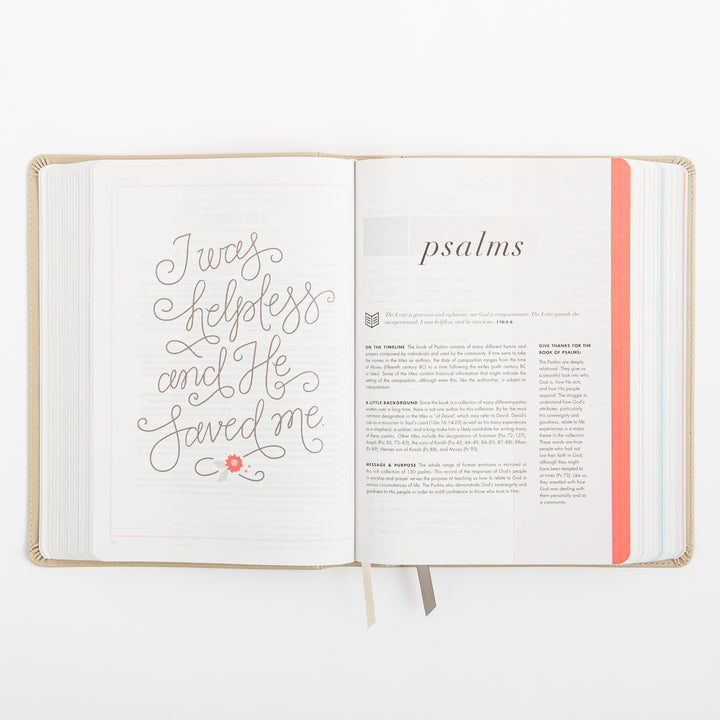 I was
helpless
and He
saved me.
psalms
The LORD is gracious and righteous; our God is compassionate. The LORD guards the
inexperienced; I was helpless, and he saved me. 116:5-6
ON THE TIMELINE The book of Psalms consists of many different hymns and
prayers composed by individuals and used by the community. If one were to take
the names in the titles as authors, the date of composition ranges from the time
of Moses (fifteenth century BC) to a time following the exiles (sixth century BC
or later). Some of the titles contain historical information that might indicate the
setting of the composition, although even this, like the authorship, is subject to
interpretation.
A LITTLE BACKGROUND Since the book is a collection of many different psalms
written over a long time, there is not one author for this collection. By far the most
common designation in the titles is "of David" which may refer to David. David's
role as a musician in Saul's court (1Sm 16:14-23) as well as his many experiences
as a shepherd, a soldier, and a king make him a likely candidate for writing many
of these psalms. Other titles include the designations of Solomon (Pss 72; 127),
Asaph (Pss 50; 73–83), the sons of Korah (Pss 42; 44–49; 84–85; 87–88), Ethan
(Ps 89), Heman son of Korah (Ps 88), and Moses (Ps 90).
MESSAGE & PURPOSE The whole range of human emotions is mirrored in
the rich collection of 150 psalms. This record of the responses of God's people
in worship and prayer serves the purpose of teaching us how to relate to God in
various circumstances of life. The Psalms also demonstrate God's sovereignty and
goodness to His people in order to instill confidence in those who trust in Him.
GIVE THANKS FOR THE
BOOK OF PSALMS:
The Psalms are deeply
relational. They give us
a beautiful look into who
God is, how He acts,
and how His people
respond. The struggle to
understand how God's
attributes, particularly
His sovereignty and
goodness, relate to life
experiences is a major
theme in the collection.
These words are from
people who had not
lost their faith in God,
although they might
have been tempted to
at times (Ps 73). Like us,
they wrestled with how
God was dealing with
them personally and as
a community.